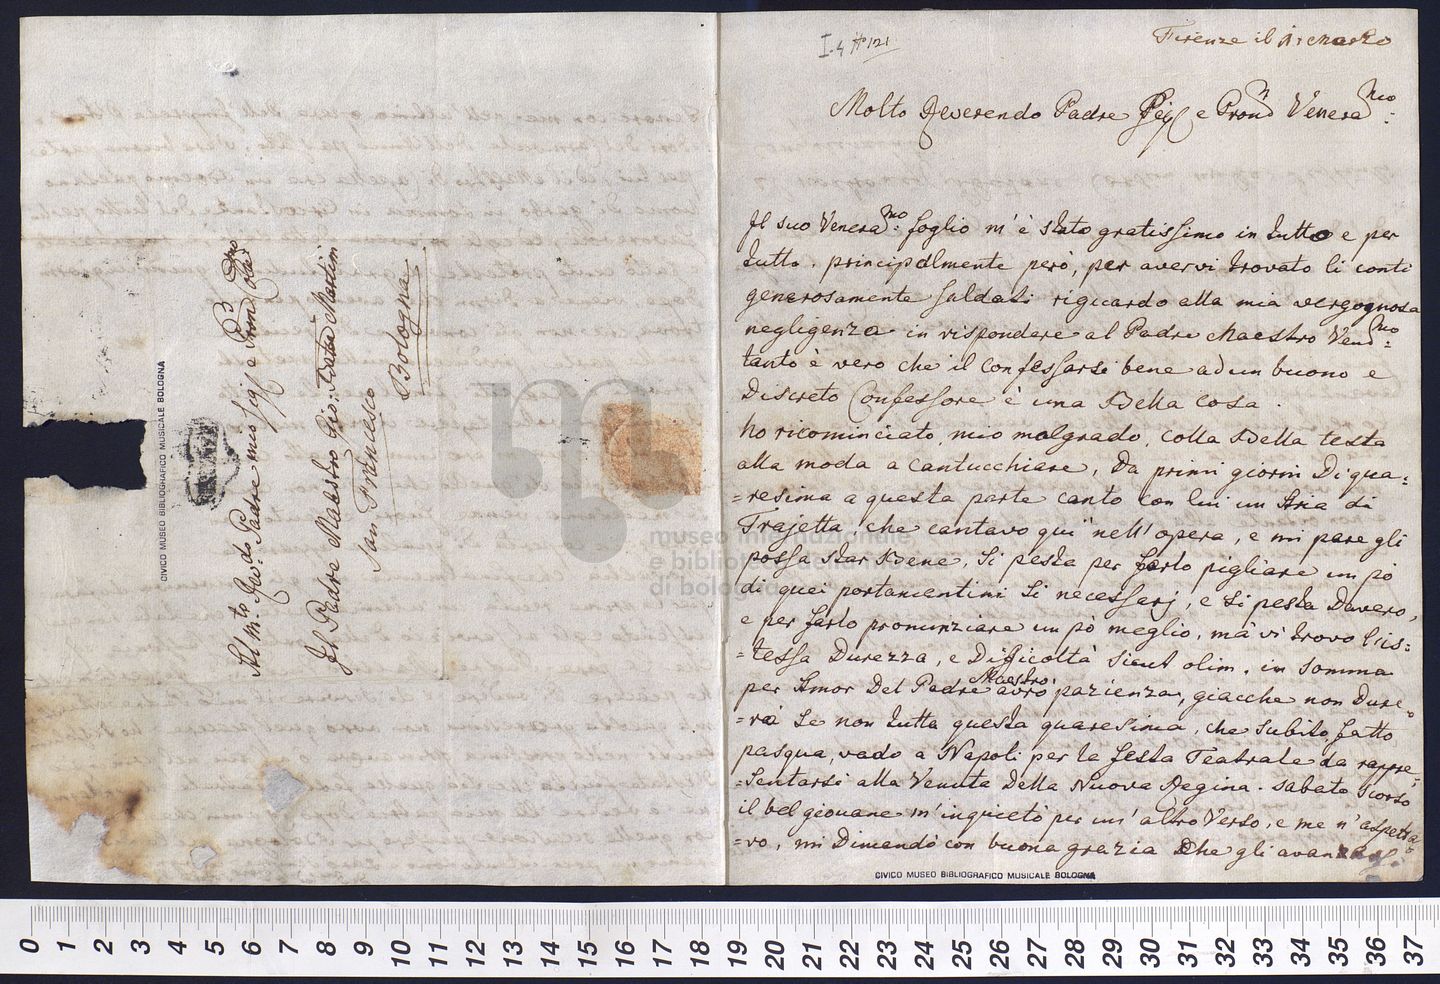 Al M.to Rev.do Padre mio Sig.e e Pron Col.mo
Il Padre Maestro Gio: Batta Martini
San Francesco
Bologna
CIVICO MUSEO BIBLIOGRAFICO MUSICALE BOLOGNA
I.4 121
Firenze il Marzo
Molto Reverendo Padre Sig. e Pron Venera.mo
Il suo Venera.mo foglio m'è stato gratissimo in tutto e per
tutto. principalmente però, per avervi trovato li conti
generosamente saldati riguardo alla mia vergognosa
negligenza in rispondere al Padre Maestro Ven.mo
tanto è vero che il Confessarsi bene ad un buono e
Discreto Confessore è una Bella Cosa.
ho ricominciato, mio malgrado, colla Bella testa
alla moda a Cantucchiare, Da primi giorni Di qua=
=resima a questa parte canto con lui un Aria di
Trajetta, che cantavo qui nell'opera, e mi pare gli
possa star Bene, Si pesta per farlo pigliare un pò
di quei portamentini Si necessarj, e Si pesta Davero,
e per farlo pronunziare un pò meglio, mà vi trovo l'is=
=tessa Durezza, e Dificoltà sicut olim. in somma
per Amor Del Padre Maestro avrò pazienza, giacche non Dure=
=rà Se non tutta questa quaresima, che Subito, fatto
pasqua, vado a Napoli per la festa Teatrale da rappre=
=sentarsi alla Venuta Della Nuova Regina. Sabato Scorso
il bel giovane m'inquietò per un'altro Verso, e me n'aspetta=
=vo, mi Dimandò con buona grazia che gli
CIVICO MUSEO BIBLIOGRAFICO MUSICALE BOLOGNA
museo internazionale
e biblioteca della musica
di bologna
0 1 2 3 4 5 6 7 8 9 10 11 12 13 14 15 16 17 18 19 20 21 22 23 24 25 26 27 28 29 30 31 32 33 34 35 36 37